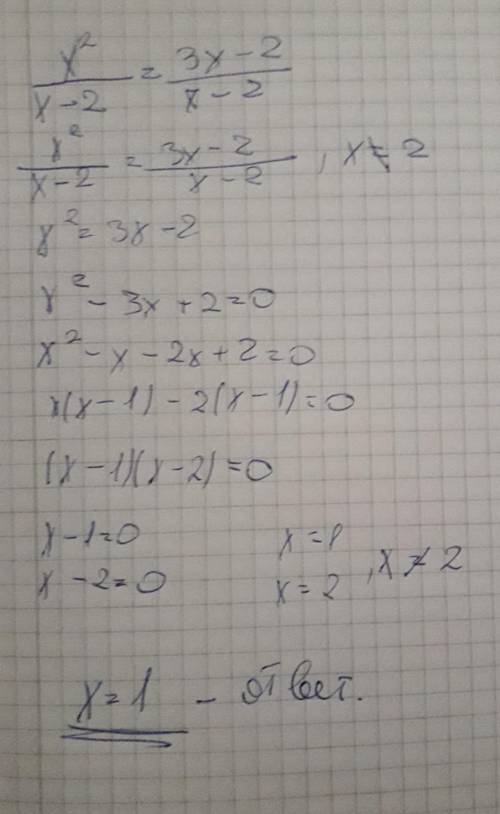 x²/(x-2) = (3x-2)/(x-2)
x²/(x-2) = (3x-2)/(x-2), x≠2
x²=3x-2
x²-3x+2=0
x²-x-2x+2=0
x(x-1)-2(x-1)=0
(x-1)(x-2)=0
x-1=0 x=1
x-2=0 x=2 , x≠2
x=1 - ответ.